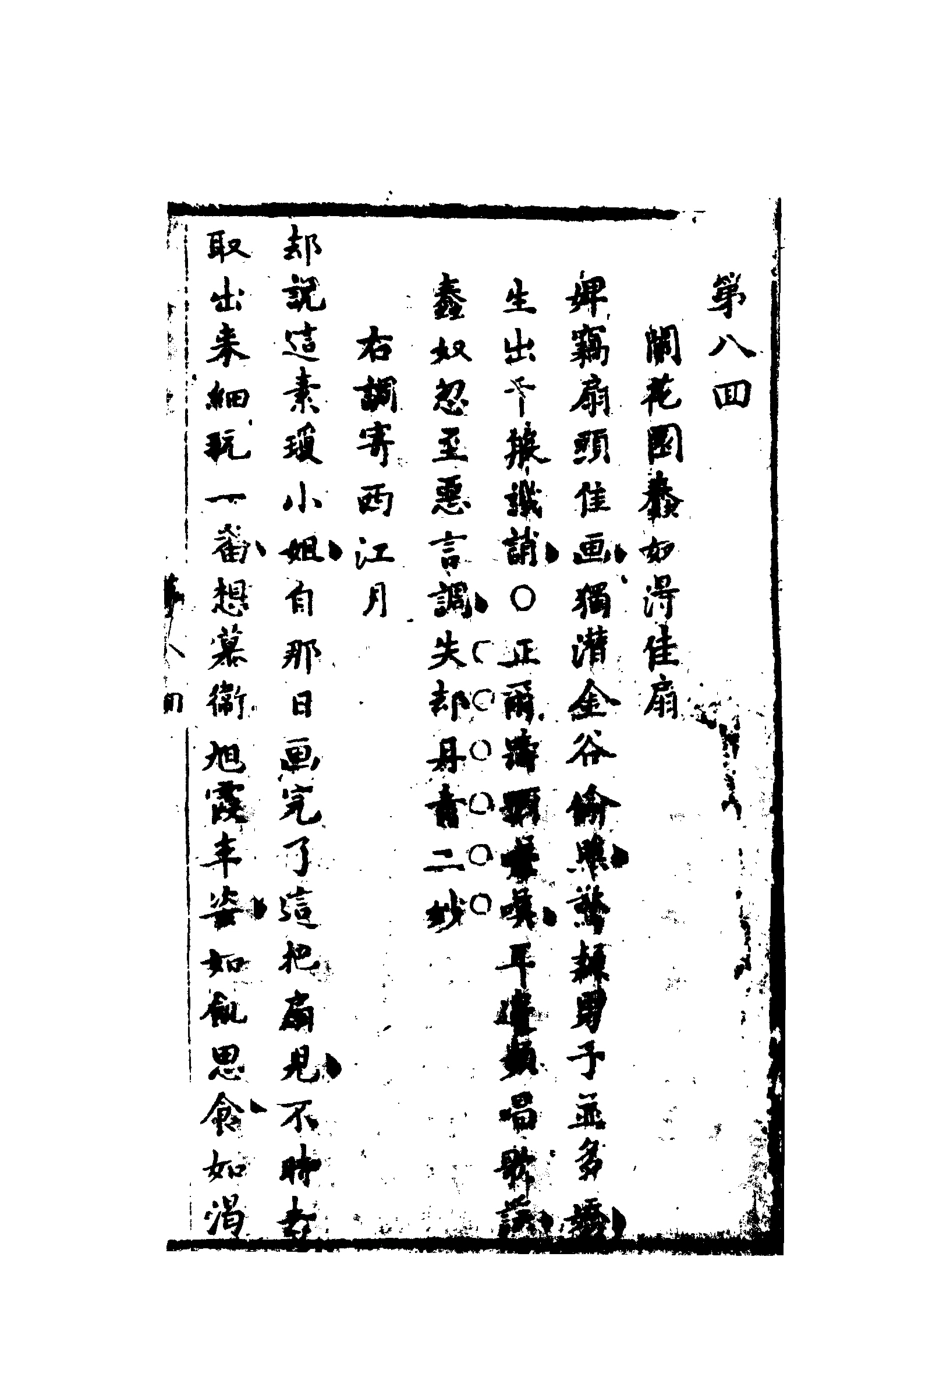 第八回
鬧花園蠢奴得佳扇
婢竊扇頭佳画獨潜金谷偷 驚 男子並多嬌
生出千般譏誚〇正爾躊 耳邊 唱歌謡
蠢奴忽至惡言調失却丹青二妙
右調寄西江月
却說這素瓊小姐自那日画完了這把扇見不時去
取出来細玩一畨想慕衞旭霞丰姿如飢思食如渴
第八回